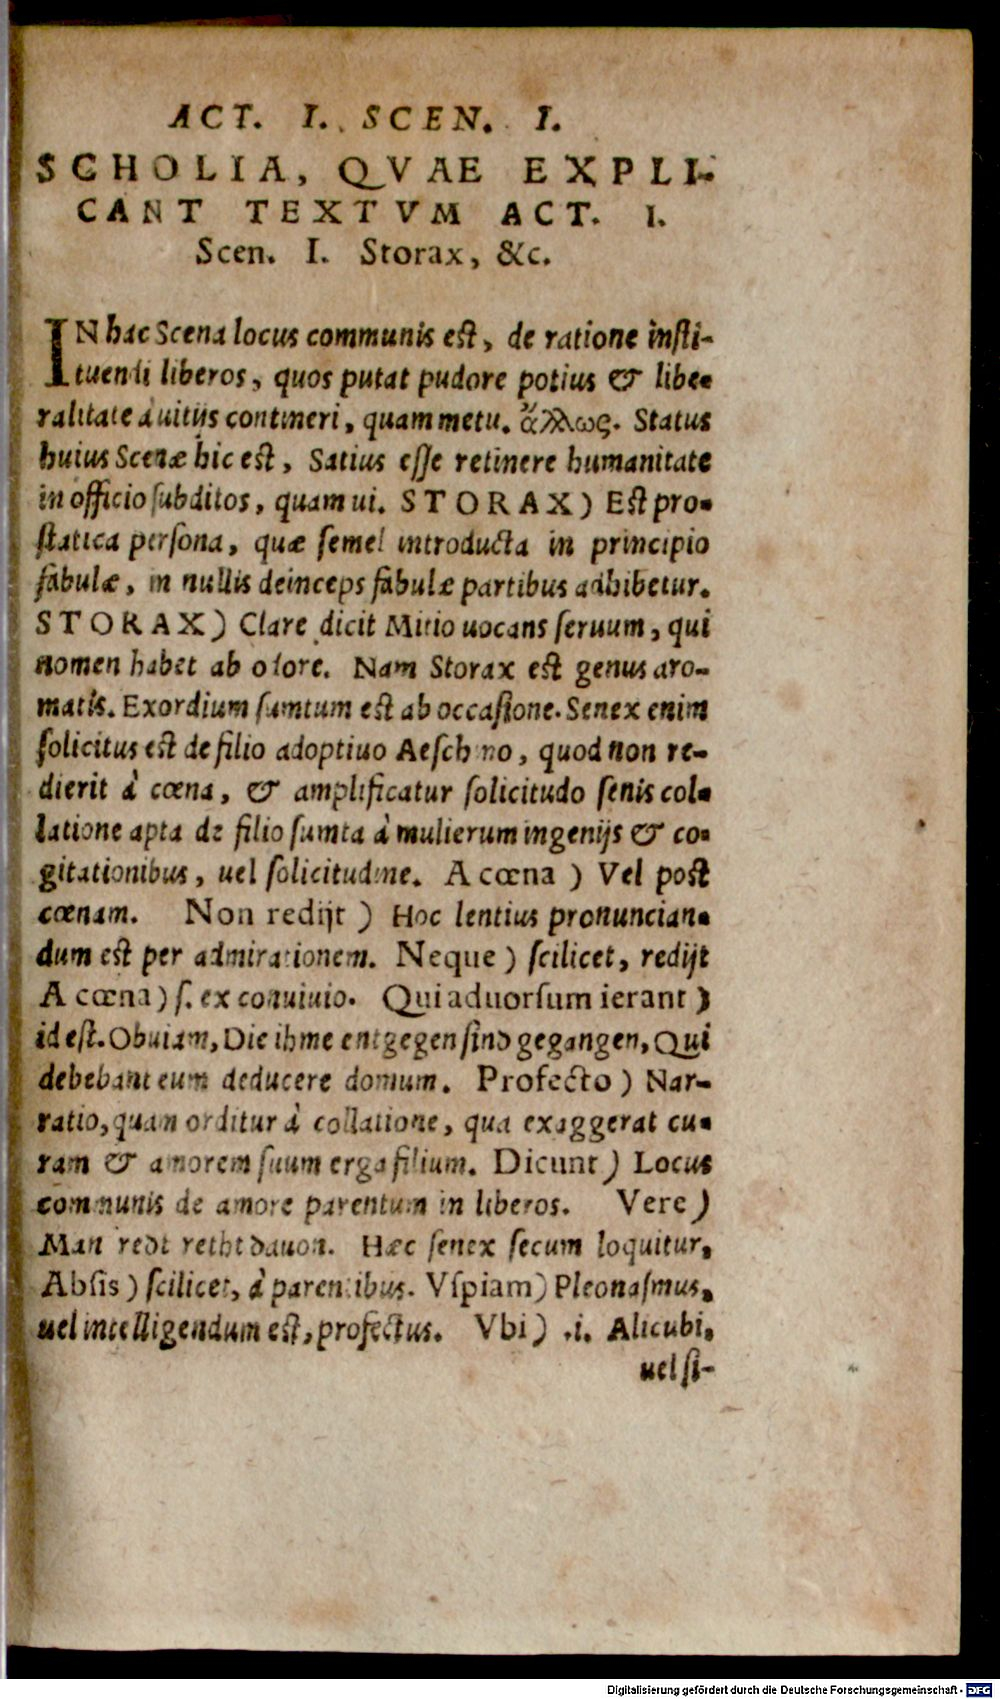 ACT. I. SCEN. I.
SCHOLIA, QVAE EXPLI-
CANT TEXTVM ACT. I.
Scen. I. Storax, &c.
IN hac Scena locus communis est, de ratione insti-
tuendi liberos, quos putat pudore potius & libe-
ralitate à uitijs contineri, quam metu. ἄλλως. Status
huius Scenæ hic est, Satius esse retinere humanitate
in officio subditos, quam ui. STORAX) Est pro-
statica persona, quæ semel introducta in principio
fabulæ, in nullis deinceps fabulæ partibus adhibetur.
STORAX) Clare dicit Mitio uocans seruum, qui
nomen habet ab odore. Nam Storax est genus aro-
matis. Exordium sumtum est ab occasione. Senex enim
solicitus est de filio adoptiuo Aeschino, quod non re-
dierit à cœna, & amplificatur solicitudo senis col-
latione apta de filio sumta à mulierum ingenijs & co-
gitationibus, uel solicitudine. A cœna ) Vel post
cœnam. Non redijt ) Hoc lentius pronuncian-
dum est per admirationem. Neque ) scilicet, redijt
A cœna ) s. ex conuiuio. Qui aduorsum ierant )
id est. Obuiam, Die ihme entgegen sind gegangen, Qui
debebant eum deducere domum. Profecto ) Nar-
ratio, quam orditur à collatione, qua exaggerat cu-
ram & amorem suum erga filium. Dicunt ) Locus
communis de amore parentum in liberos. Vere )
Man redt retht dauon. Hæc senex secum loquitur,
Absis ) scilicet, à parentibus. Vspiam ) Pleonasmus,
uel intelligendum est, profectus. Vbi ) .i. Alicubi,
uel si-
Digitalisierung gefördert durch die Deutsche Forschungsgemeinschaft - DFG